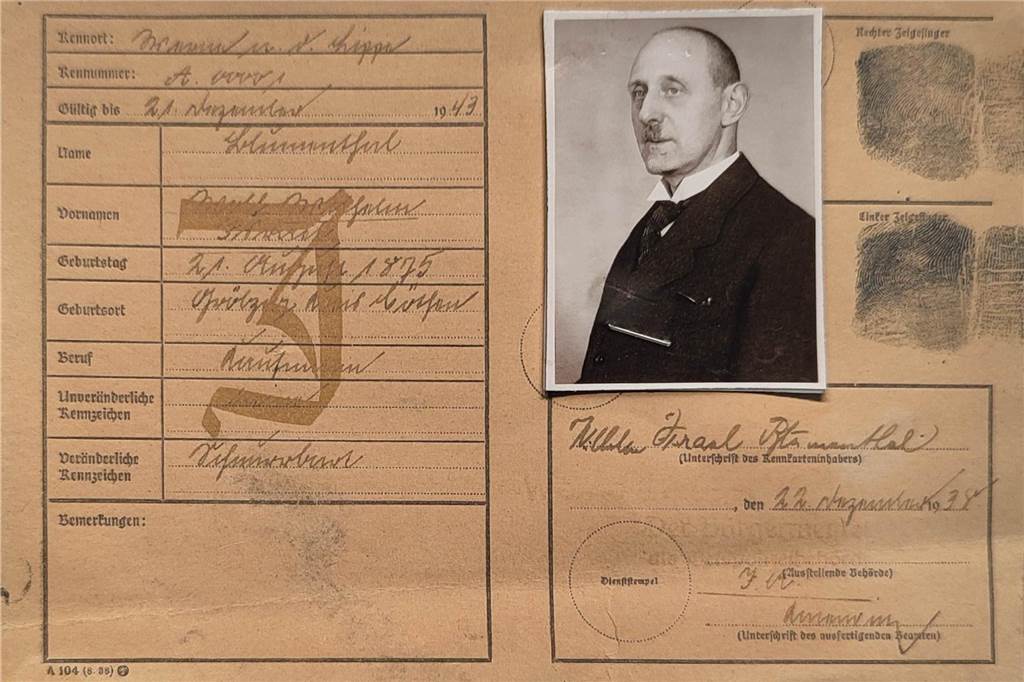 Kennort: Werne a. d. Lippe
Kennummer: A. 00001
Gültig bis 21. Dezember 1943
Name Blumenthal
Vornamen Wilhelm
Geburtstag 21. August 1875
Geburtsort Gröbzig Kreis Cöthen
Beruf Kaufmann
Unveränderliche
Kennzeichen
Veränderliche Schnurrbart
Kennzeichen
Bemerkungen:
J
A 104 (8. 38)
Rechter Zeigefinger
Linker Zeigefinger
Wilhelm Israel Blumenthal
(Unterschrift des Kennkarteninhabers)
, den 22. Dezember 1938
(Ausstellende Behörde)
Dienststempel
(Unterschrift des ausfertigenden Beamten)